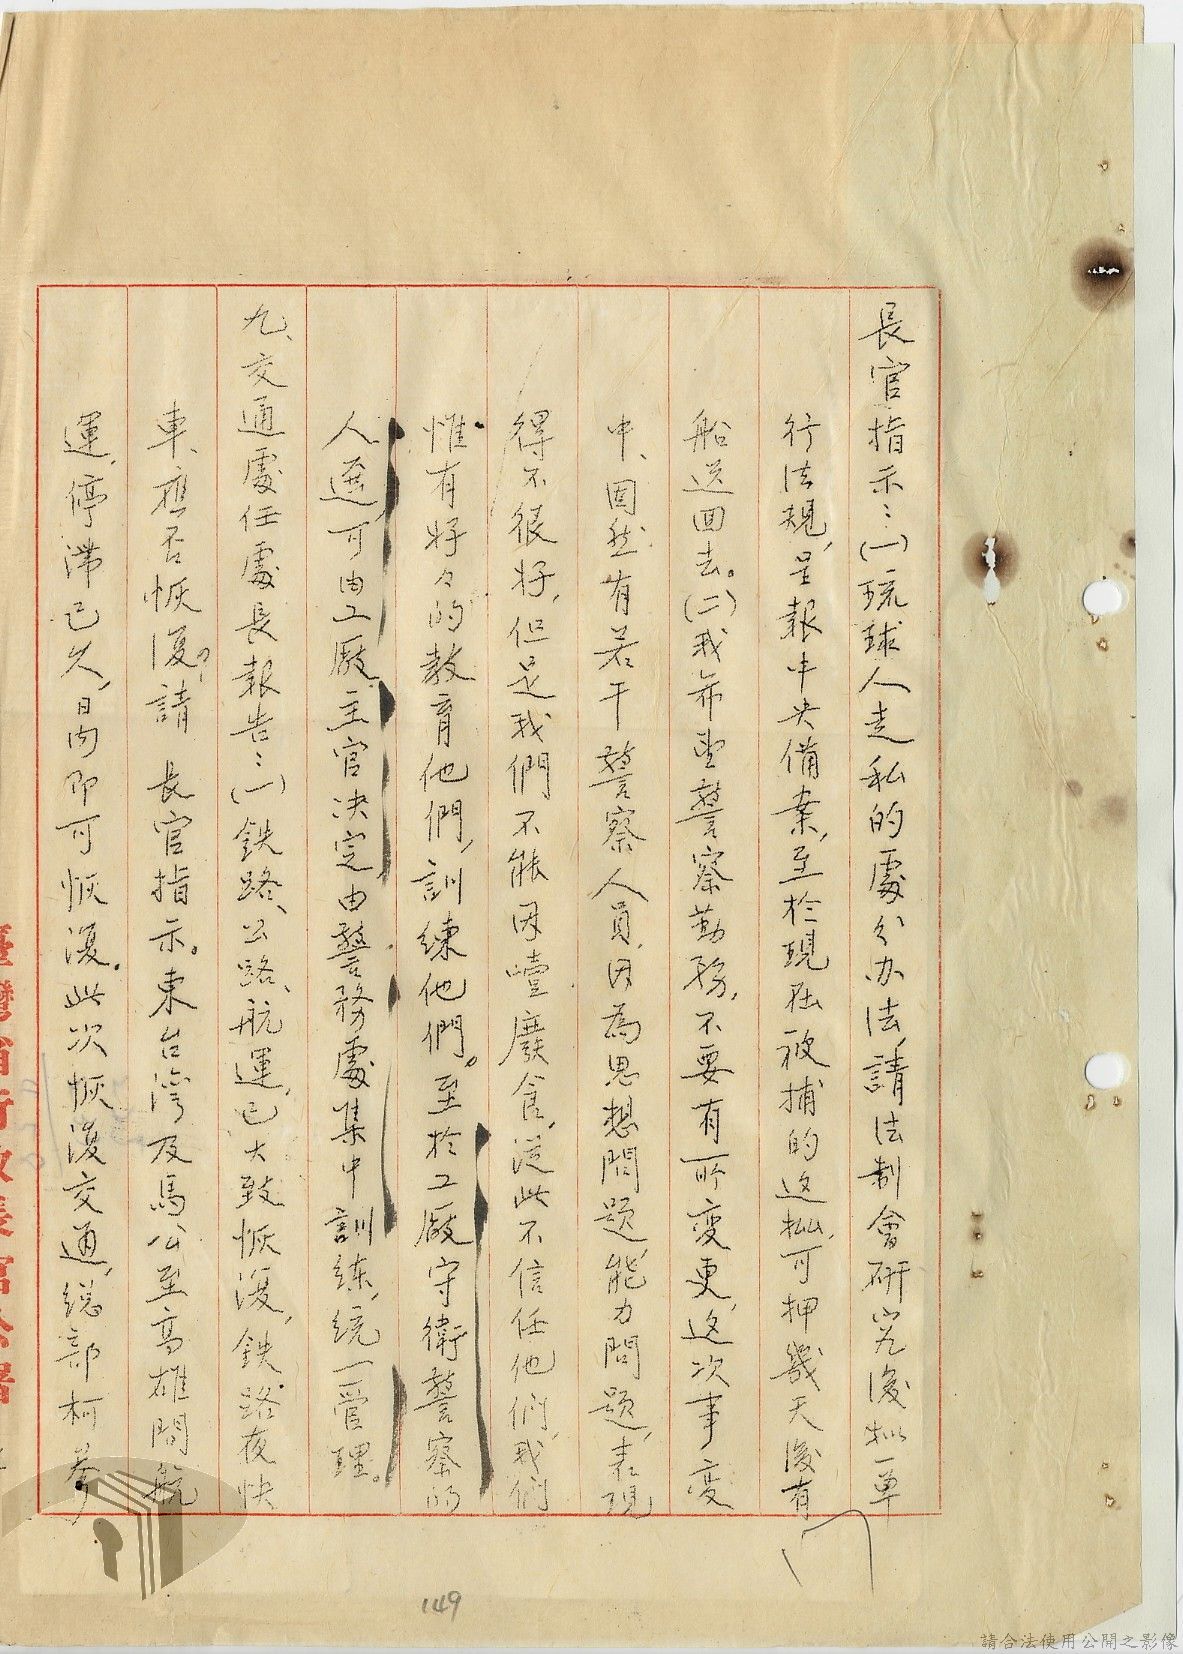 長官指示：(一)琉球人走私的處分办法，請法制會研究後拟一單
行法規，呈報中央備案，至於現在被捕的这批，可押幾天後有
船送回去。(二)我希望警察勤務，不要有所变更，这次事变
中、固然有若干警察人員，因為思想問題，能力問題，表現
得不很好，但是我們不能因噎廢食，從此不信任他們，我們
惟有好々的教育他們，訓練他們。至於工廠守衛警察的
人選，可由工廠主官決定由警務處集中訓練，統一管理。
九、交通處任處長報告：(一)鉄路、公路、航運，已大致恢復，鉄路夜快
車、應否恢復？請 長官指示。東台灣及馬公至高雄間航
運，停滯已久，日内即可恢復。此次恢復交通，總部柯參
149
請合法使用公開之影像